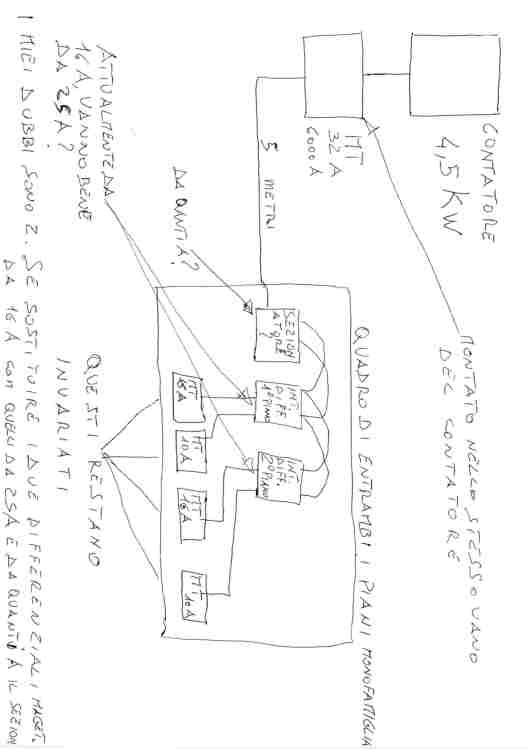 CONTATORE
4,5 KW
MT
32 A
6000 A
MONTATO NELLO STESSO VANO
DEL CONTATORE
5 METRI
QUADRO DI ENTRAMBI I PIANI MONOFAMIGLIA
DA QANTIA?
SEZION
ATORE
?
INT.
DIFF
1°PIANO
INT.
DIFF
2°PIANO
MT
16A
MT
10A
MT
16A
MT
10A
ATTUALMENTE DA
16 A, VANNO BENE
DA 25A?
QUESTI RESTANO
INVARIATI
I MIEI DUBBI SONO 2. SE SOSTITUIRE I DUE DIFFERENZIALI MAGET.
DA 16A CON QUELLI DA 25A E DA QUANTI A IL SEZION